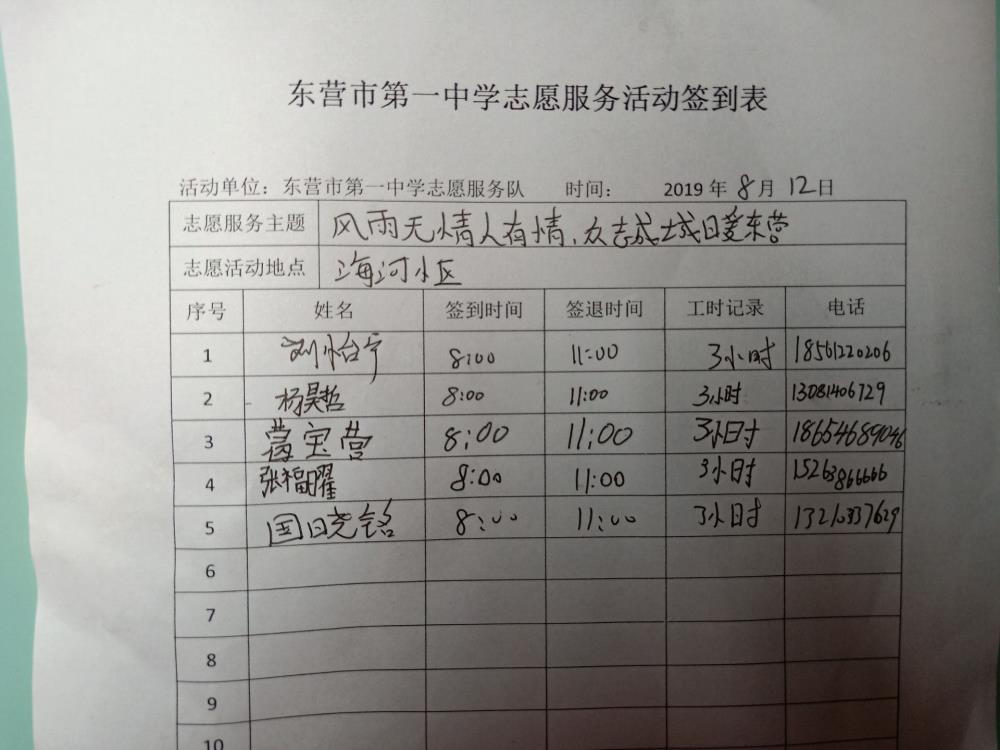 东营市第一中学志愿服务活动签到表
活动单位：东营市第一中学志愿服务队 时间： 2019年8月12日
志愿服务主题 风雨无情人有情，众志成城日爱东营
志愿活动地点 海河小区
序号 姓名 签到时间 签退时间 工时记录 电话
1 刘怡宁 8:00 11:00 3小时 18561220206
2 杨昊哲 8:00 11:00 3小时 13081406729
3 宝营 8:00 11:00 3小时 18654689046
4 张福曜 8:00 11:00 3小时 15263866666
5 国晓铭 8:00 11:00 3小时 13210337629
6
7
8
9
10